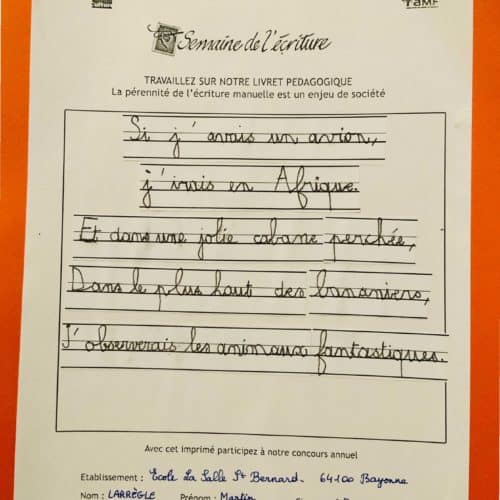 Semaine de l'écriture
TRAVAILLEZ SUR NOTRE LIVRET PEDAGOGIQUE
La pérennité de l'écriture manuelle est un enjeu de société
Si j'avais un avion,
j'irais en Afrique.
Et dans une jolie cabane perchée,
Dans le plus haut des bananiers,
J'observerais les animaux fantastiques.
Avec cet imprimé participez à notre concours annuel
Etablissement : Ecole La Salle St Bernard. 64100 Bayonne
Nom : LARRÈGLE Prénom : Martin